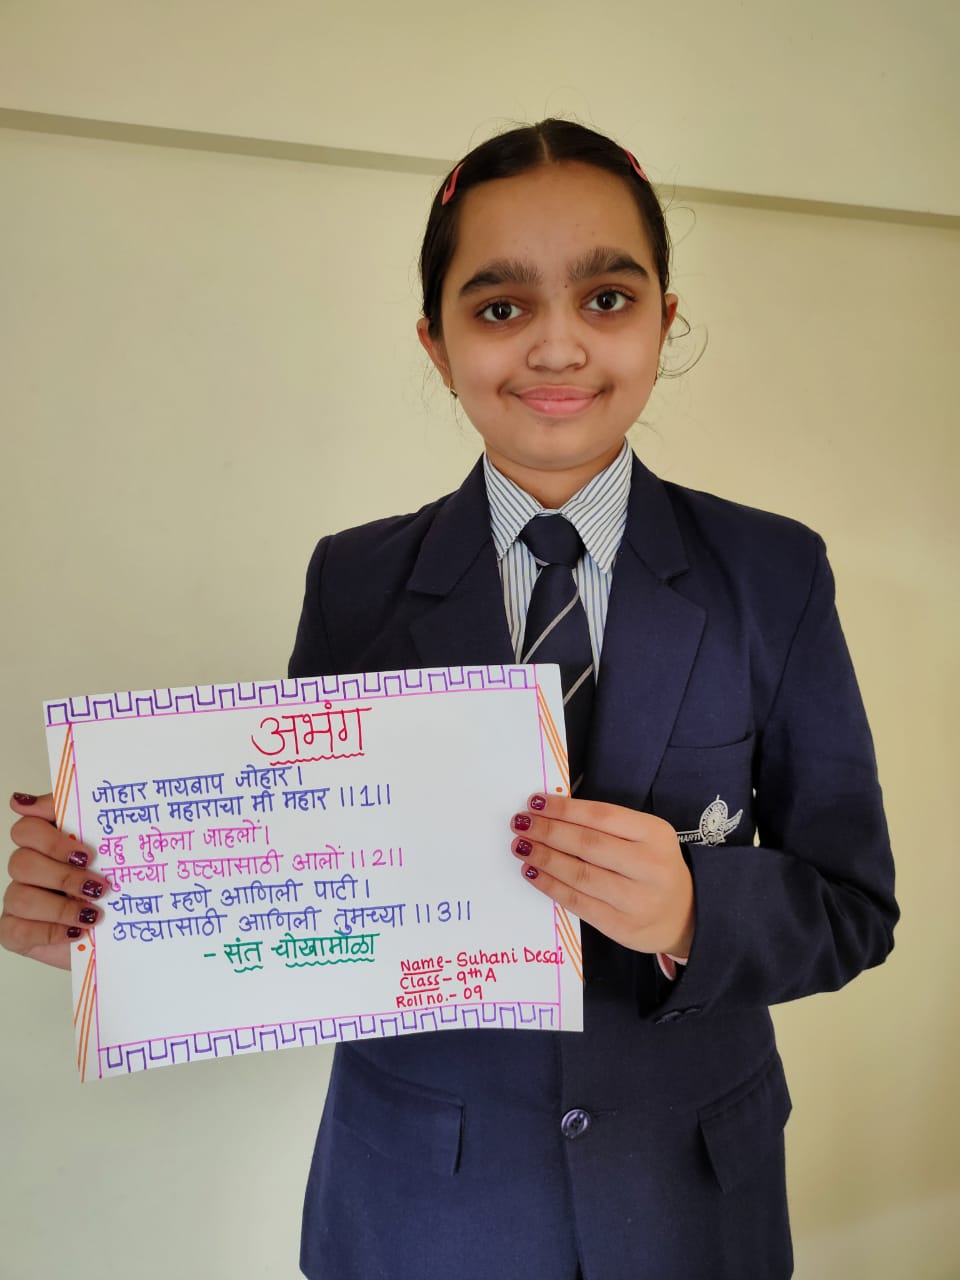 अभंग
जोहार मायबाप जोहार।
तुमच्या महाराचा मी महार ।।1।।
बहु भुकेला जाहलों।
तुमच्या उष्ट्यासाठी आलों ।।2।।
चोखा म्हणे आणिली पाटी।
उष्ट्यासाठी आणिली तुमच्या ।।3।।
- संत चोखामेळा
Name- Suhani Desai
Class- 9th A
Roll no.- 09